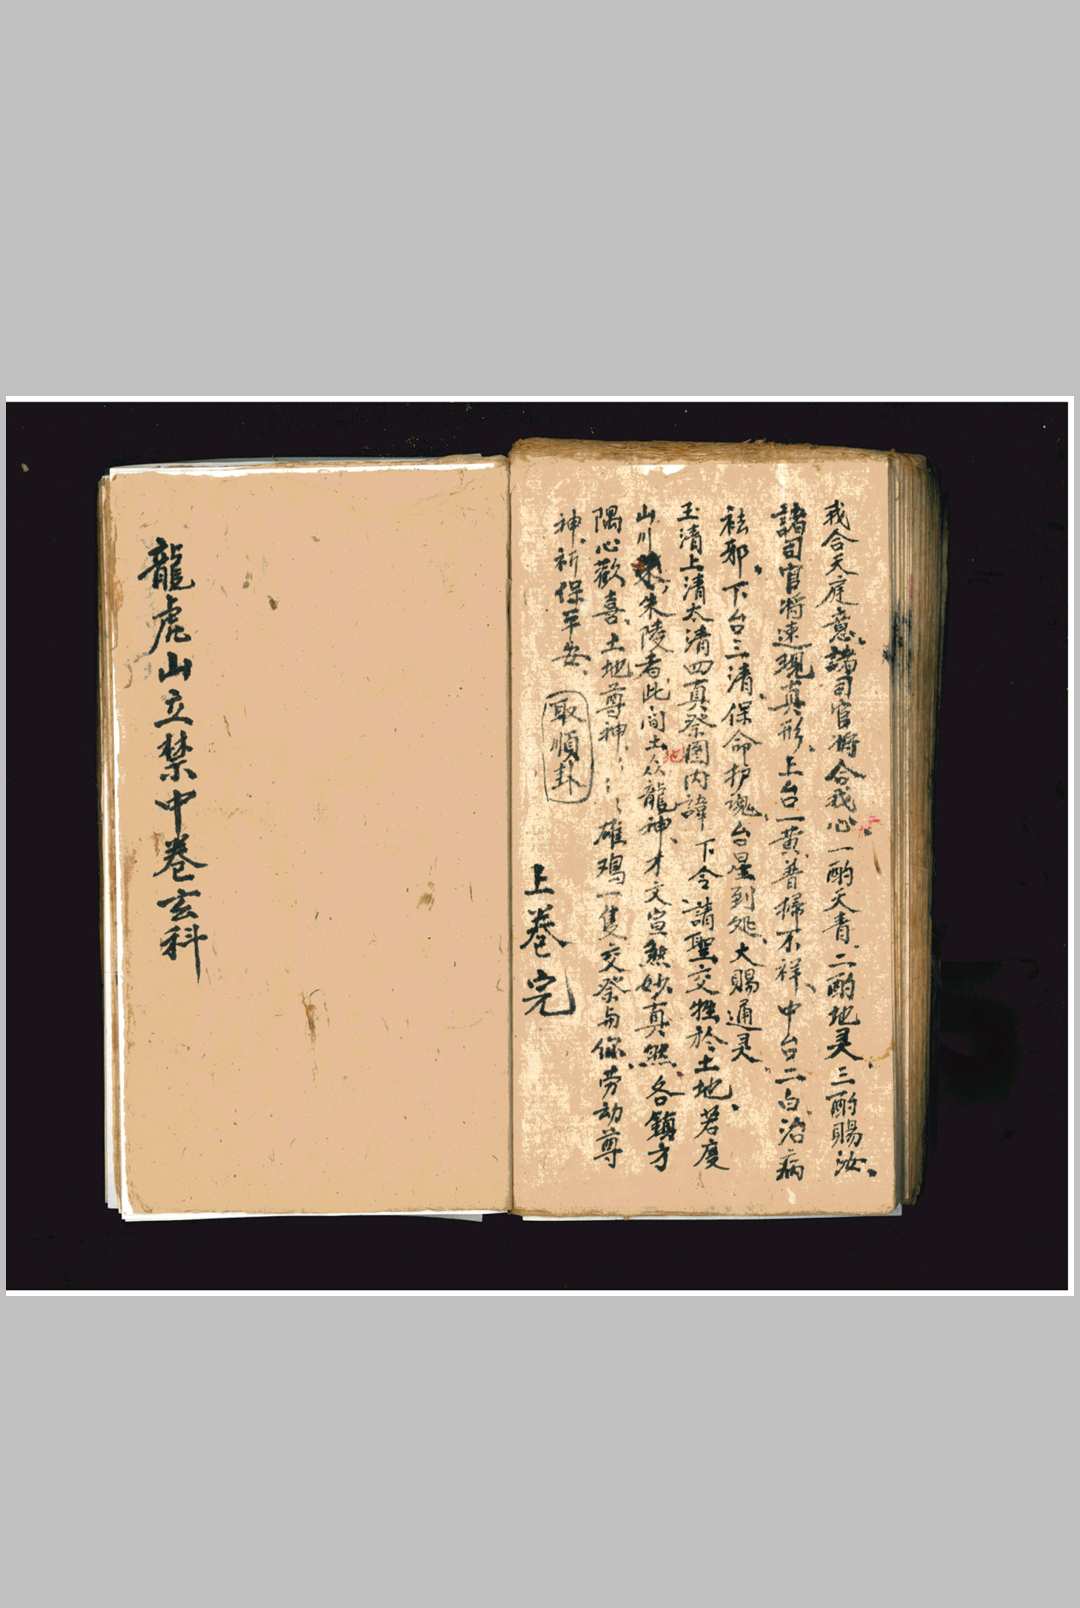 我合天庭意、諸司官將合我心、一酌天青、二酌地灵、三酌賜汝、
諸司官将速現真形、上台一黄、普掃不祥、中台二白、治病
袪邪、下台三清、保命护魂、台星到処、大賜通灵、
玉清上清太清四真祭圍内諱 下令 請聖交牲於土地、若度
山川 朱陵者、此间土地众龍神、才文宣然妙真、然、各鎮方
隅心歡喜、土地尊神、、、、雄鸡一隻交祭与你、劳动尊
神、祈保平安、取順卦
上卷完
龍虎山立禁中卷玄科